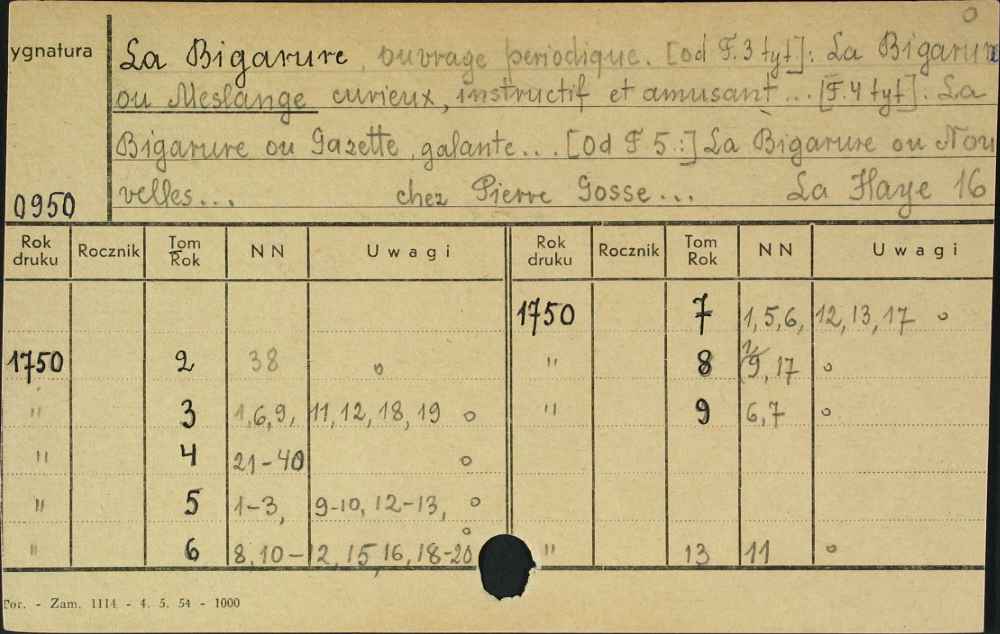 0
ygnatura
La Bigarure, ouvrage periodique. [od F.3 tyt]: La Bigarure
ou Meslange curieux, instructif et amusant... [F.4 tyt]: La
Bigarure ou Gazette galante... [od F 5.:] La Bigarure ou Nou
velles... chez Pierre Gosse... La Haye 16
0950
Rok druku Rocznik Tom Rok NN Uwagi Rok druku Rocznik Tom Rok NN Uwagi
1750 7 1,5,6, 12,13,17 o
1750 2 38 o " 8 9,17 o
" 3 1,6,9, 11,12,18,19 o " 9 6,7 o
" 4 21-40 o
" 5 1-3, 9-10, 12-13, o
" 6 8,10-12,15,16,18-20 o " 13 11 o
Tor. - Zam. 1114 - 4. 5. 54 - 1000